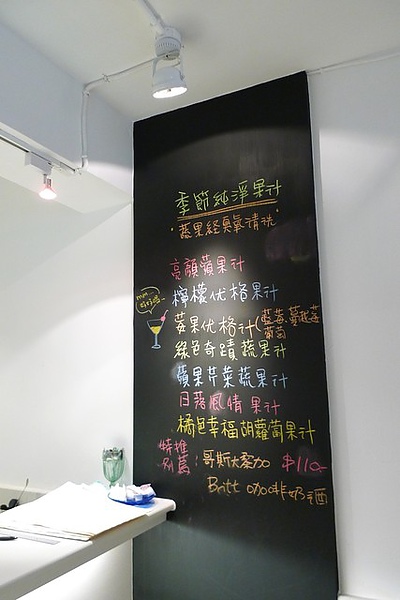 季節純淨果汁
·蔬果經臭氧清洗·
亮顏蘋果汁
檸檬优格果汁
莓果优格汁(藍莓.蔓越莓
葡萄
綠色奇蹟蔬果汁
蘋果芹菜蔬果汁
日落風情果汁
橘色幸福胡蘿蔔果汁
特推
別薦：哥斯大黎加 $110-
Britt 咖啡奶酒